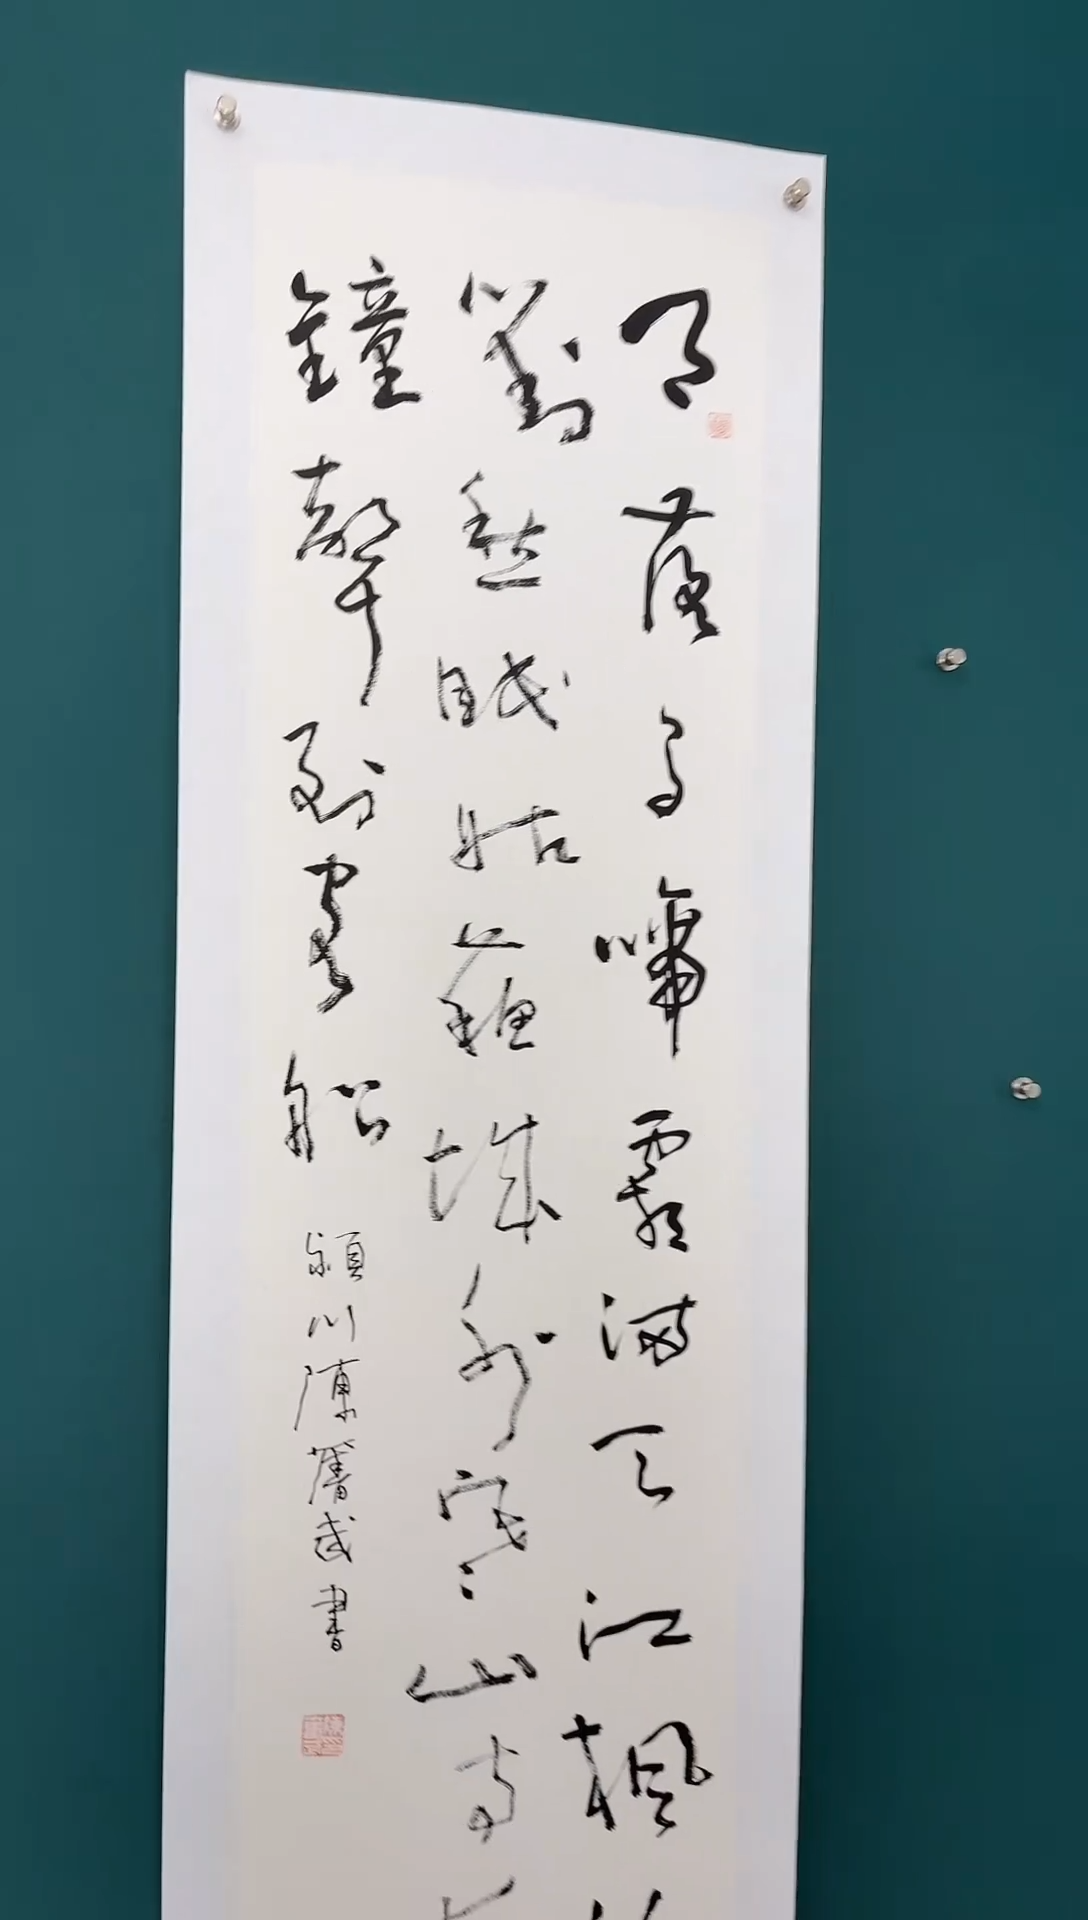 月落烏啼霜滿天江楓
對愁眠姑蘇城外寒山寺
鐘聲到客船
潁川陳書